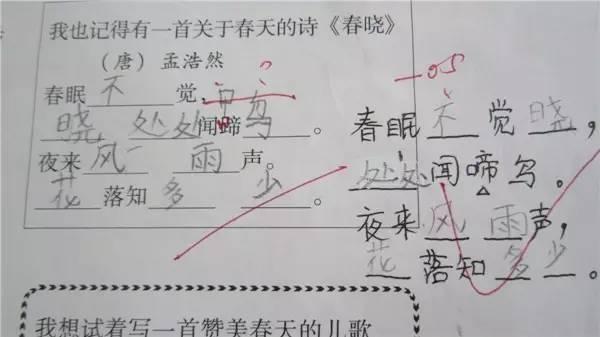 我也记得有一首关于春天的诗《春晓》
（唐）孟浩然
春眠不觉，
晓处处闻蹄鸟。
夜来风雨声。
花落知多少。
-0.5
春眠不觉晓，
处处闻啼鸟。
夜来风雨声，
花落知多少。
我想试着写一首赞美春天的儿歌